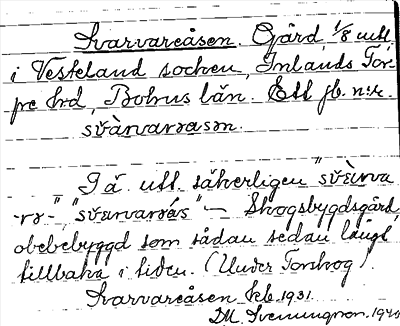 Svarvareåsen. Gård, 1/8 mtl.
i Västerland socken, Inlands Tor-
pe hrd, Bohus län. Ett jb. n:r.
svàrvaråsən.
I ä. utt. säkerligen "svè̄rva
-rə-", "svɛrvaråås" — Skogsbygdsgård,
obebebyggd som sådan sedan långt
tillbaka i tiden. (Under Torskog).
Svarvareåsen kb. 1931.
DM. Svenningson. 1940